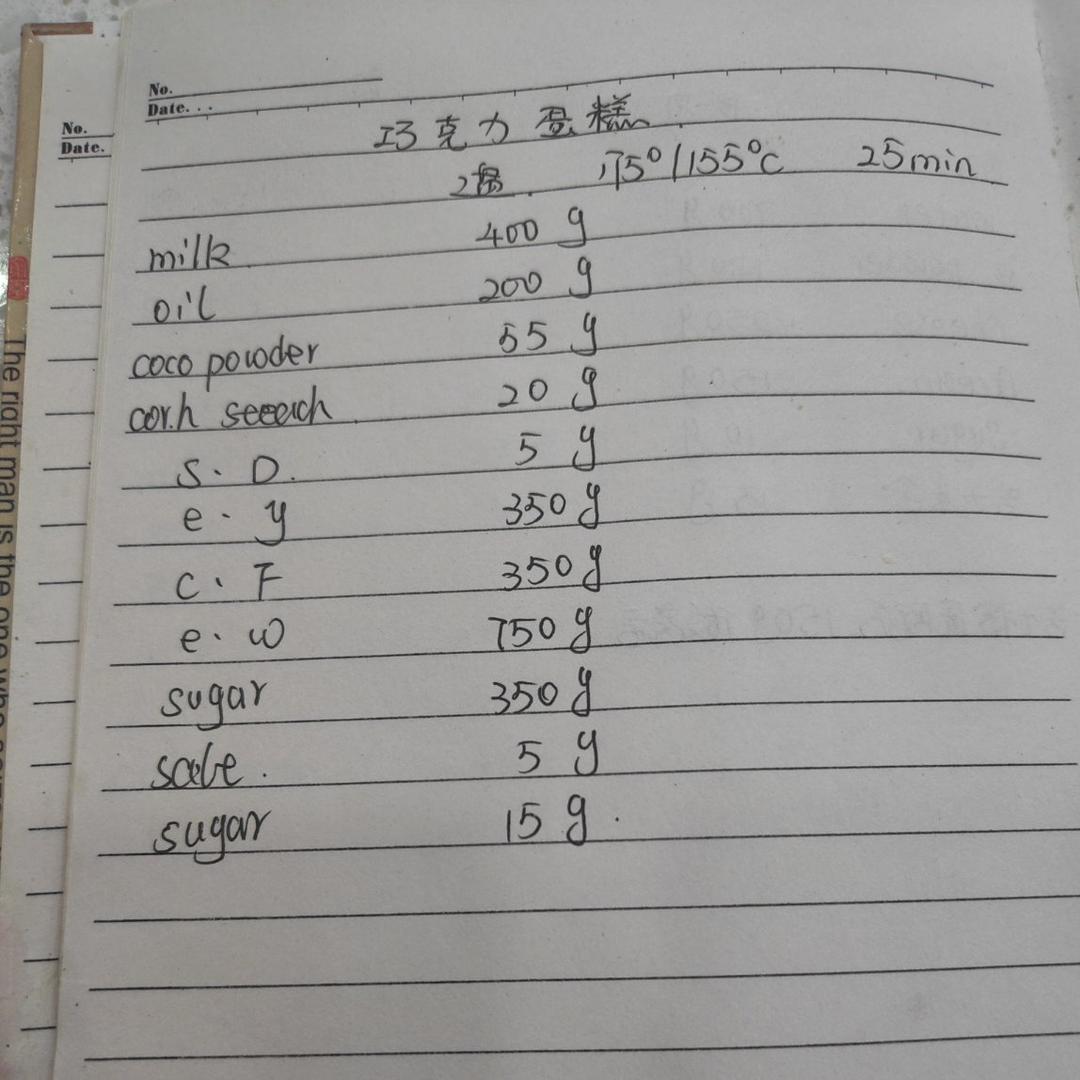 No.
Date. . .
No.
Date.
巧克力蛋糕
2盘. 175°/155°C 25min
milk 400 g
oil 200 g
coco powder 55 g
corh seeach 20 g
S. D. 5 g
e. y 350 g
C. F 350 g
e. w 750 g
sugar 350 g
salte. 5 g
sugar 15 g.
The right man is the one who